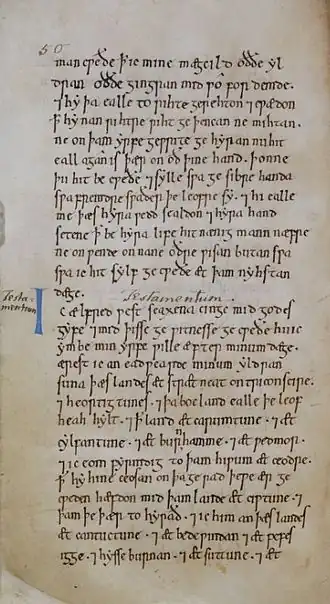 50
man cweðe ꝥ ic mine mægcild oððe yl
dran oððe gingran mid wó fordemde.
⁊ hy þa ealle to rihte gerehton ⁊ cwædon
ꝥ hy nan rihtre riht ge þencan ne mihtan.
ne on þam yrfe gewrite ge hyran nu hit
eall agan is þær on oð þine hand. þonne
þu hit be cweðe ⁊ sylle swa ge sibre handa
swa fremdre swaðer þe leofre sy. ⁊ hi ealle
me þæs hyra wedd sealdon ⁊ hyra hand
setene ꝥ be hyra life hit nænig mann næfre
ne on wende on nane oðre wisan butan swa
swa ic hit sylf ge cweðe æt þam nyhstan
dæge. Testamentum.
Testamentum
Ic ælfred west seaxena cinge mid godes
gyfe ⁊ mid þisse ge witnesse ge cweðe hu ic
ymbe min yrfe wille æfter minum dæge.
ærest ic an eadwearde minum yldran
suna þæs landes æt strætneat on triconscire.
⁊ heortigtunes. ⁊ þa boc land ealle þe leof
heah hylt. ⁊ ꝥ land æt carumtune. ⁊ æt
cylfantune. ⁊ æt burnhamme. ⁊ æt wedmor.
⁊ ic eom fyrmdig to þam hiwum æt ceodre.
ꝥ hy hine ceosan on þa ge rad þe we ær ge
cweden hæfdon mid þam lande æt ciwtune. ⁊
þam þe þær to hyrað. ⁊ ic him an þæs landes
æt cantuctune. ⁊ æt bedewindan ⁊ æt pefes
igge. ⁊ hysse burnan. ⁊ æt suttune. ⁊ æt